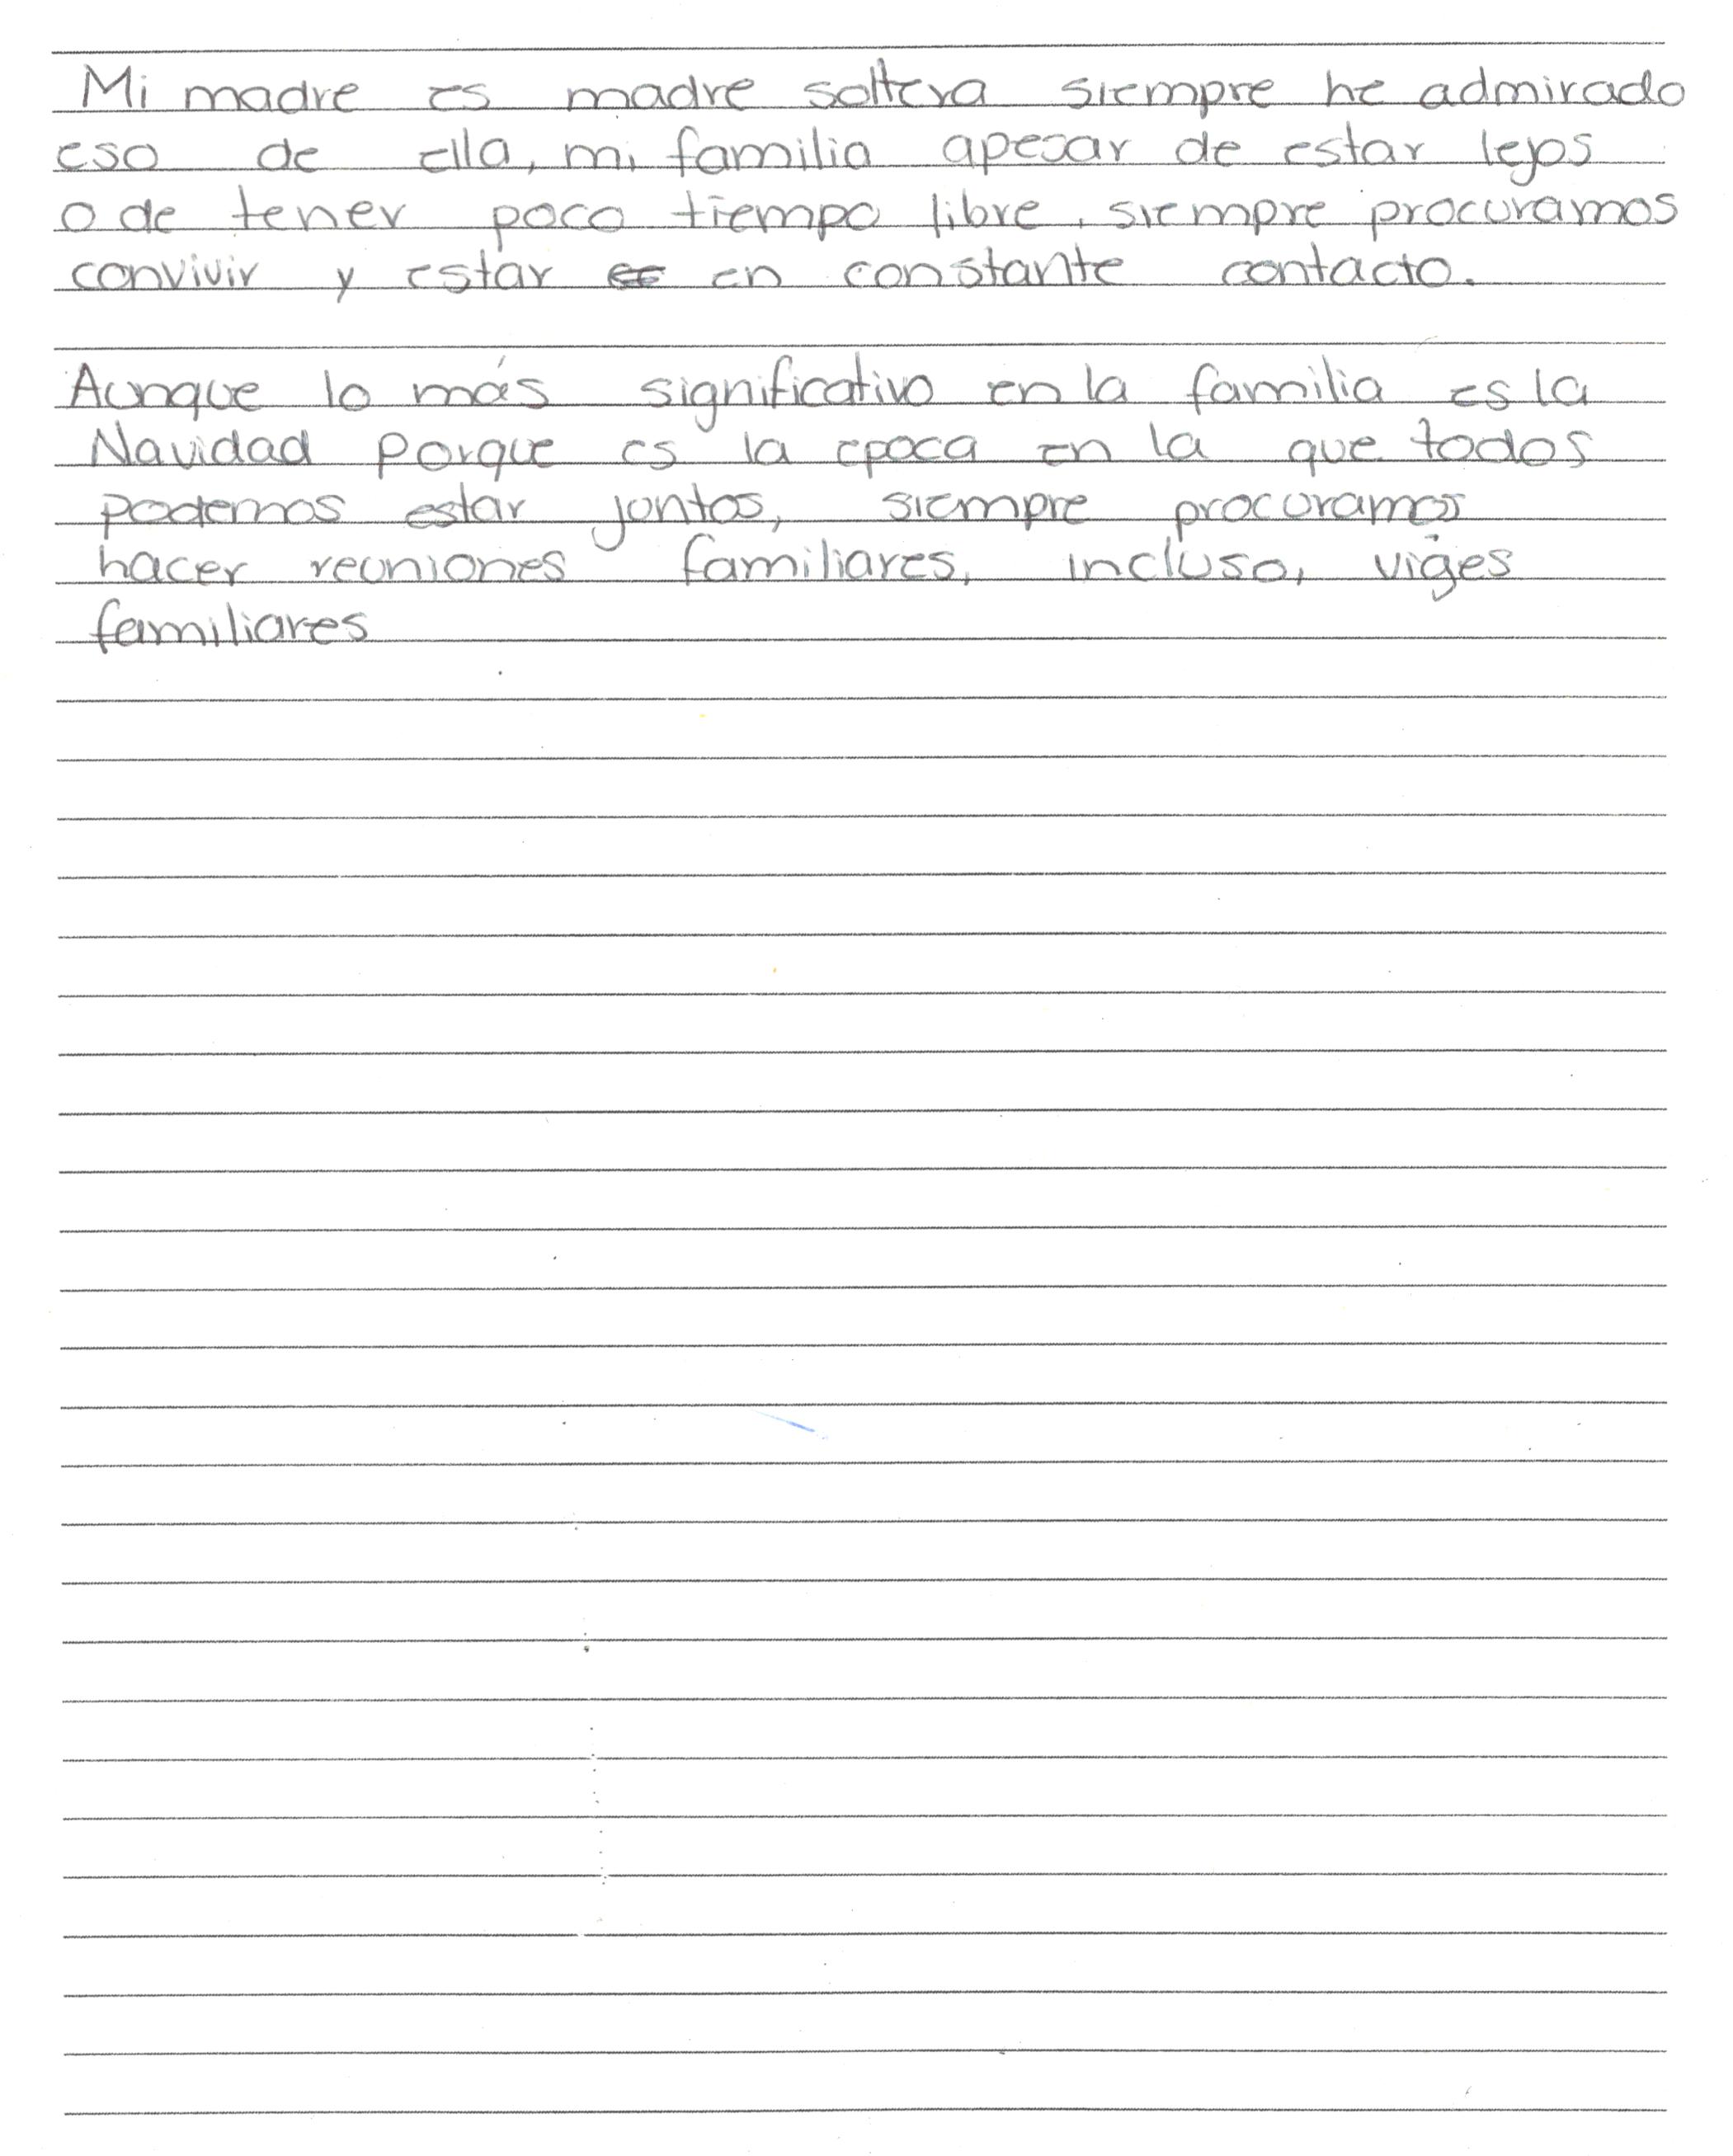 Mi madre es madre soltera siempre he admirado
eso de ella, mi familia apesar de estar lejos
o de tener poco tiempo libre, siempre procuramos
convivir y estar en constante contacto.
Aunque lo más significativo en la familia es la
Navidad porque es la epoca en la que todos
podemos estar juntos, siempre procuramos
hacer reuniones familiares, incluso, viajes
familiares